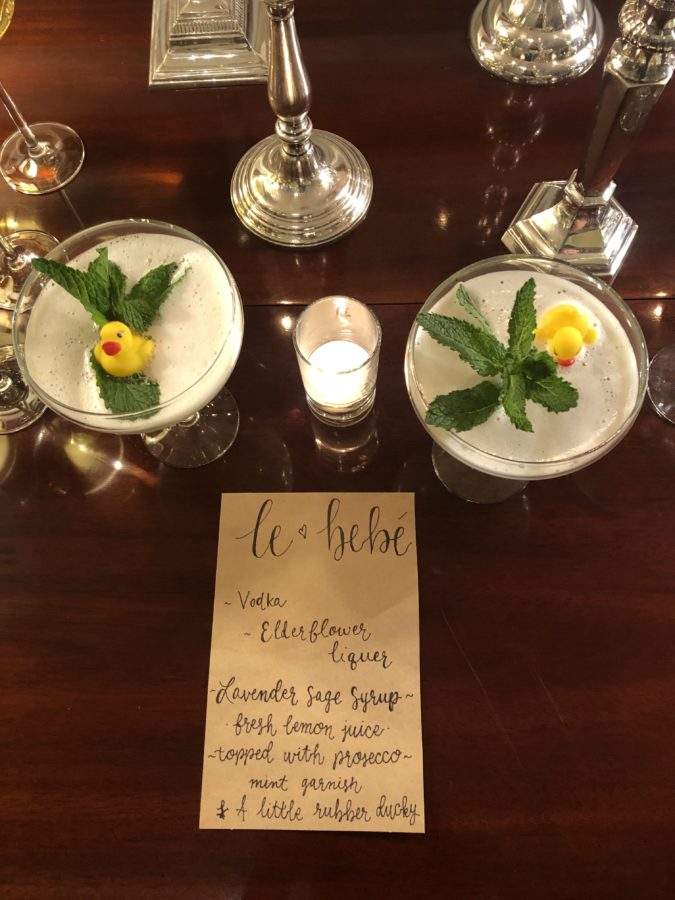 le ♡ bebé
~ Vodka
~ Elderflower
liquer
~Lavender Sage Syrup~
· fresh lemon juice ·
~topped with prosecco~
mint garnish
& A little rubber ducky